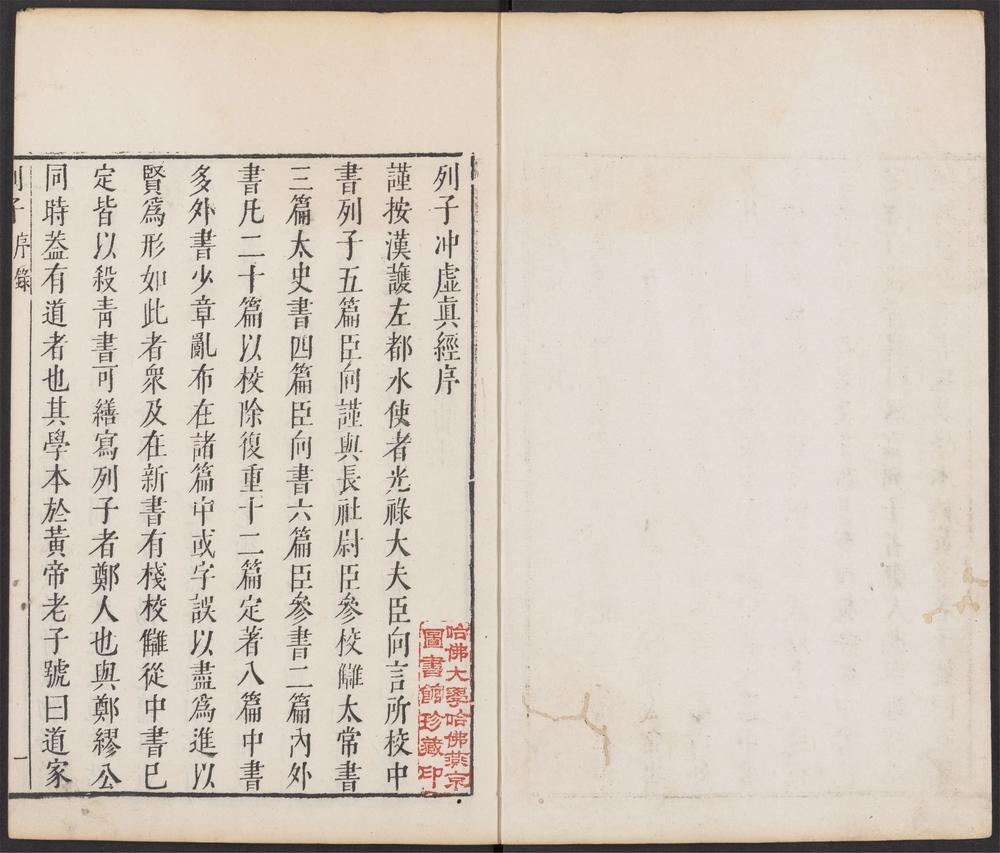 列子冲虛眞經序
謹按漢䕶左都水使者光祿大夫臣向言所校中
書列子五篇臣向謹與長社尉臣參校讎太常書
三篇太史書四篇臣向書六篇臣參書二篇內外
書凡二十篇以校除復重十二篇定著八篇中書
多外書少章亂布在諸篇中或字誤以盡爲進以
賢爲形如此者衆及在新書有棧校讎從中書巳
定皆以殺靑書可繕寫列子者鄭人也與鄭繆公
同時葢有道者也其學本於黃帝老子號曰道家
列子 序錄 一
哈佛大學哈佛燕京
圖書館珍藏印